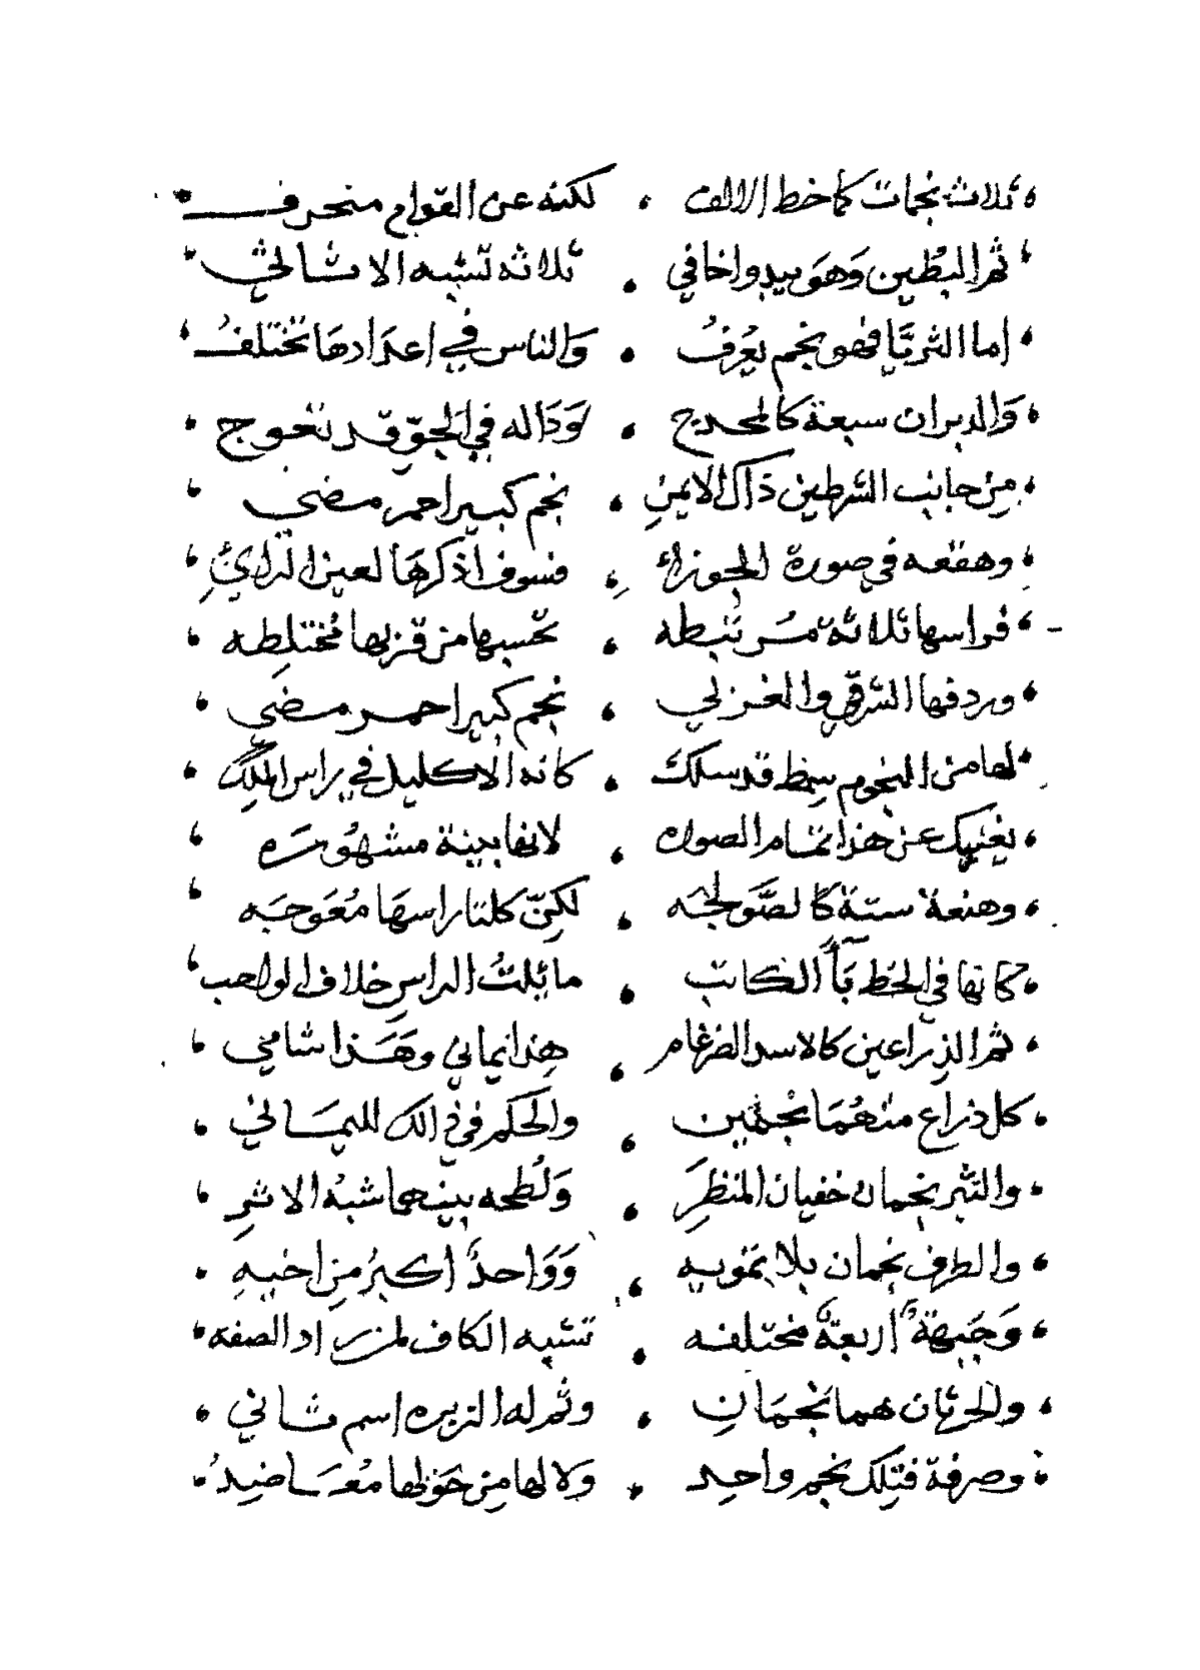 ثلاث نجمات كما خط الالف لكنه عن القوام منحرف
ثم البُطَين وَهوَ يبدوا خافي ثلاثه تشبه الاثافي
اما الثريَّا فهو نجم يُعرفُ وَالناس في اعدادهَا تختلفُ
وَالدبران سبعة كالمحدج وَدَاله في الجوّ قد تعوج
مِن جانب الشرطين ذاك الايمنِ نجم كبير احمر مضي
وهقعه في صورة الجوزاءِ فسوف اذكرهَا لعين الرائي
فراسها ثلاثة مُرتبطه تحسبها من قربها مُختلِطه
وردفها الشرقي والغربي نجم كبير احمر مضي
لها من النجوم سِمط قد سلك كانه الاكليل في راس الملِك
يغنيك عن هذا تمام الصوره لانها بينة مشهُورَه
وهنعة ستة كالصَّولجَه لكنّ كلتا راسهَا مُعَوجَه
كانها في الخط بَآ الكاتب مائلتُ الراسِ خلاف الواجب
ثم الذِراعين كالاسد الضرغام هذا يماني وهَذا شامي
كل ذراع منهُمَا نجمين والحكم في ذالك لليمَاني
والنثر نجمان خفيان المنظرَِ وَلُطخه بينهما شبهُ الاثرِ
والطرف نجمان بلا تمويه وَوَاحدٌ اكبرُ مِن اخيهِ
وَجَبهةٌ اربعةٌ مختلفه تشبه الكاف لمن راد الصفه
والخرثان هما نجمَانِ وثم له الزبره اسم ثاني
وصرفة فتِلك نجم واحِد ولا لها مِن حَولها مُعَاضِدُ